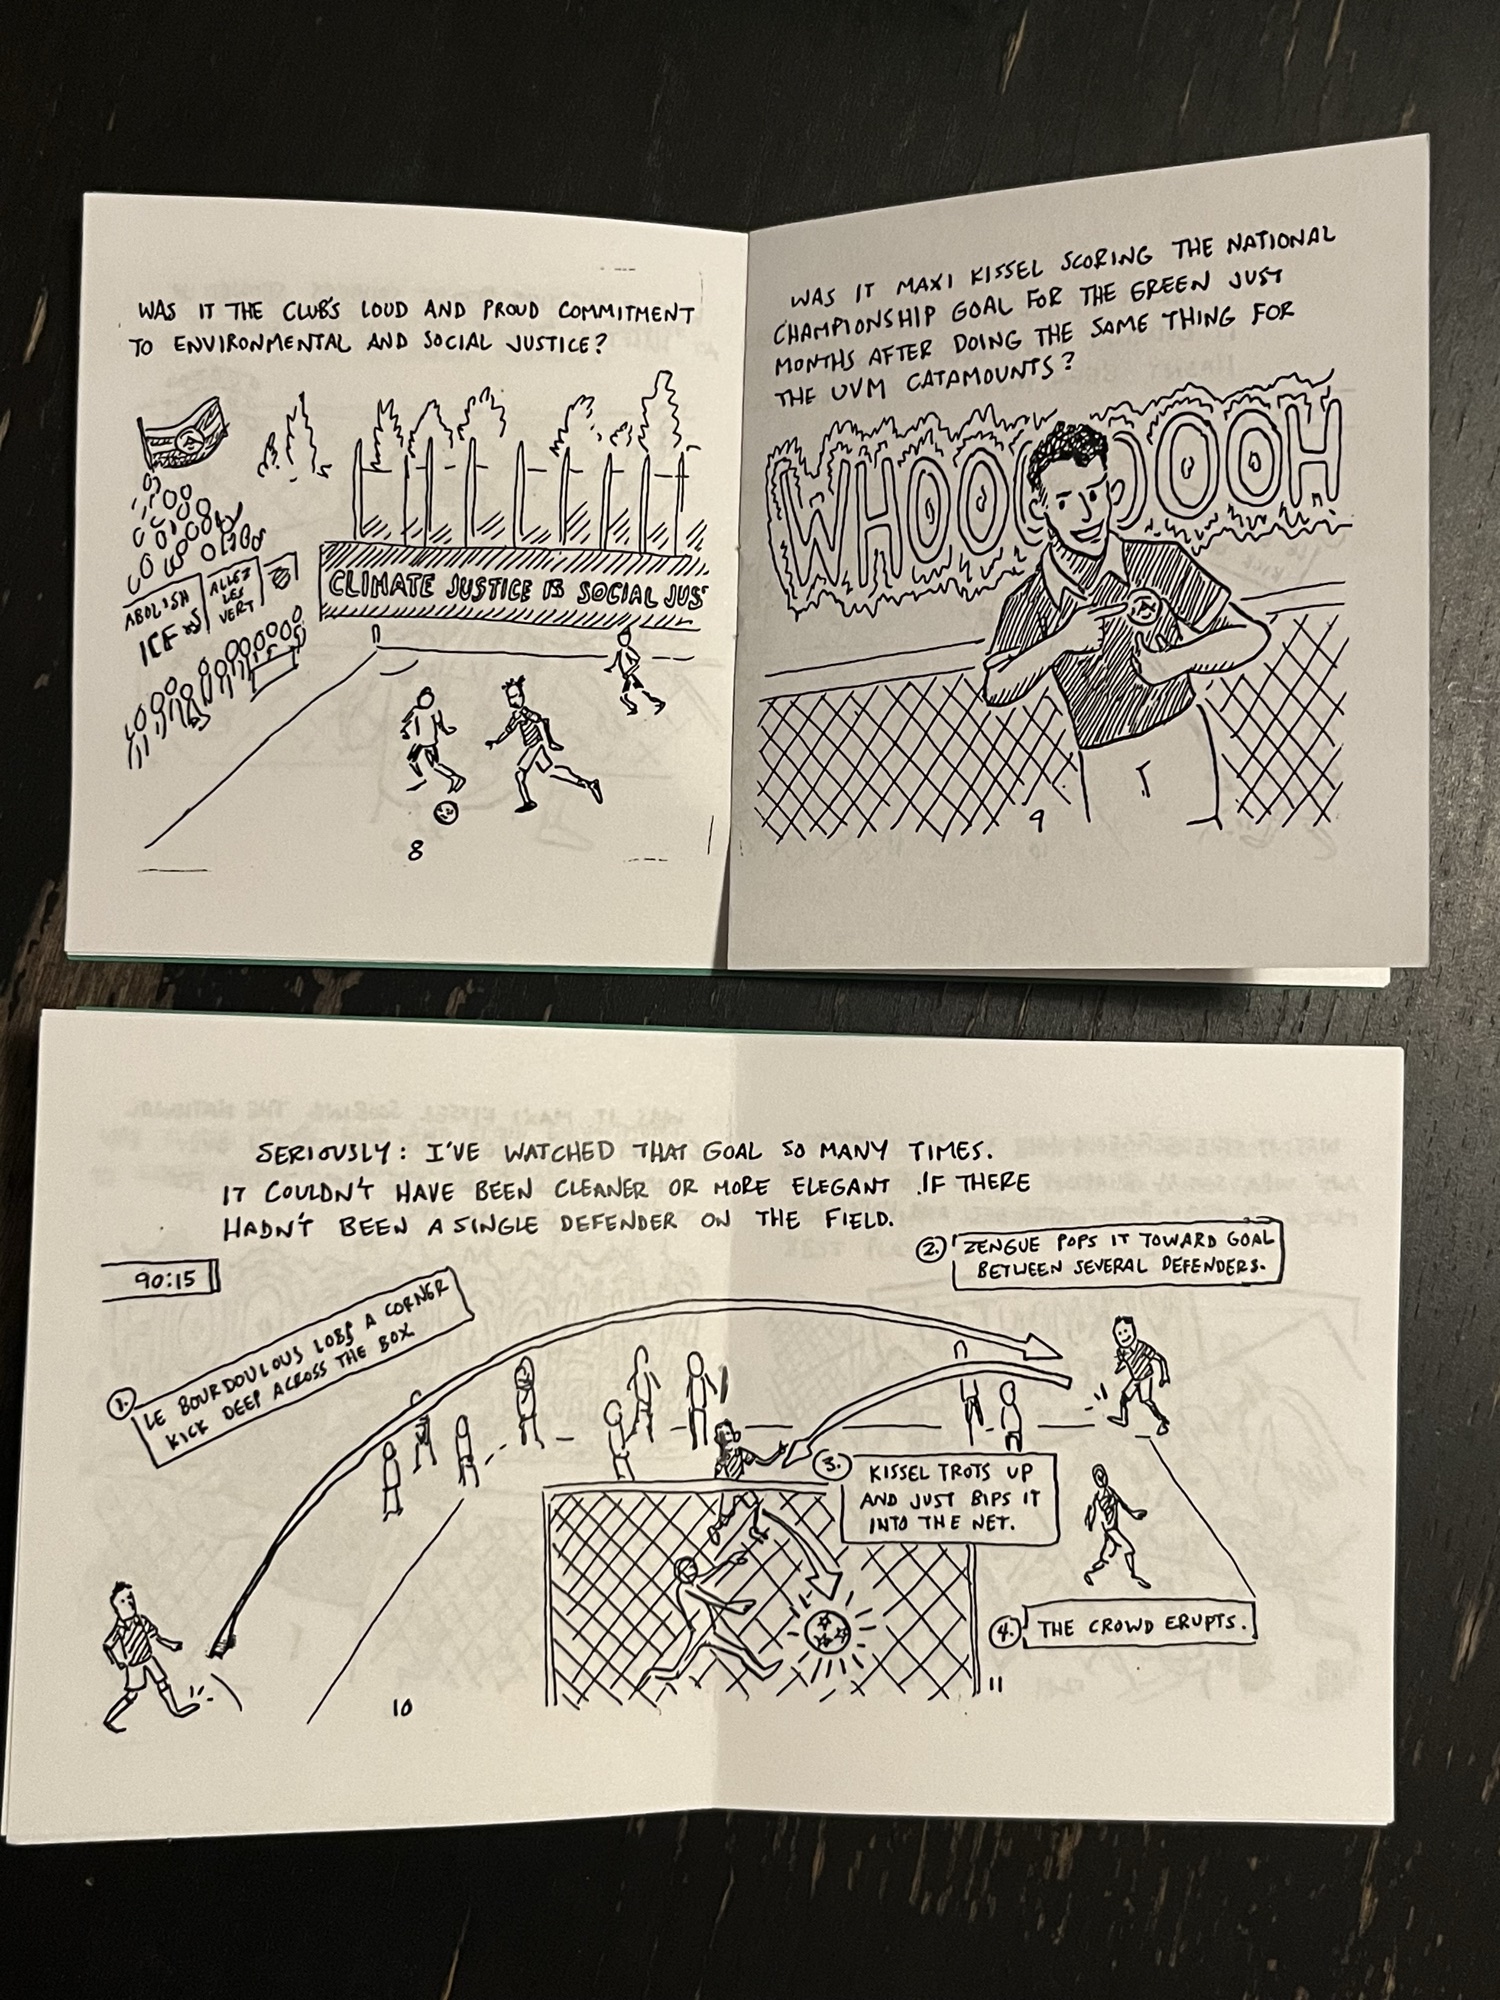 WAS IT THE CLUB'S LOUD AND PROUD COMMITMENT
TO ENVIRONMENTAL AND SOCIAL JUSTICE?
ABOLISH
ICE
ALLEZ
LES
VERT
CLIMATE JUSTICE IS SOCIAL JUS
8
WAS IT MAXI KISSEL SCORING THE NATIONAL
CHAMPIONSHIP GOAL FOR THE GREEN JUST
MONTHS AFTER DOING THE SAME THING FOR
THE UVM CATAMOUNTS?
WHOOOOOOH
9
SERIOUSLY: I'VE WATCHED THAT GOAL SO MANY TIMES.
IT COULDN'T HAVE BEEN CLEANER OR MORE ELEGANT IF THERE
HADN'T BEEN A SINGLE DEFENDER ON THE FIELD.
90:15
1. LE BOURDOULOUS LOBS A CORNER
KICK DEEP ACROSS THE BOX.
2. ZENGUE POPS IT TOWARD GOAL
BETWEEN SEVERAL DEFENDERS.
3. KISSEL TROTS UP
AND JUST BIPS IT
INTO THE NET.
4. THE CROWD ERUPTS.
10
11